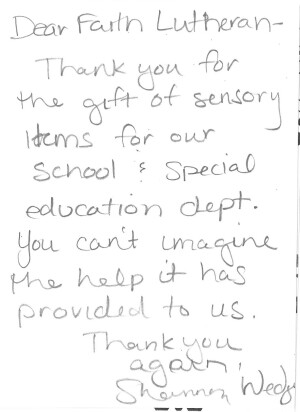 Dear Faith Lutheran-
Thank you for
the gift of sensory
items for our
School & Special
education dept.
You can't imagine
the help it has
provided to us.
Thank you
again,
Shannon